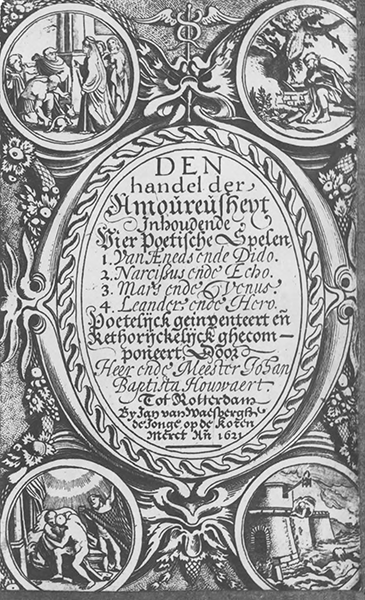 DEN
handel der
Amoureusheyt
Inhoudende
Vier Poetische Spelen
1. Van Æneas ende Dido.
2. Narcissus ende Echo.
3. Mars ende Venus.
4. Leander ende Hero.
Poetelijck geinventeert eñ
Rethorijckelijck ghecom-
poneert, Door
Heer ende Meester Johan
Baptista Houwaert.
Tot Rotterdam
By Jan van Waesberghe
de Jonge, op de Koren
Merct Aň 1621